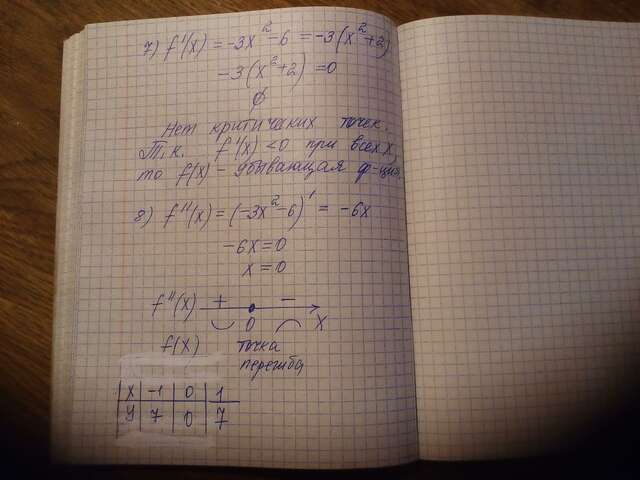 7) f'(x) = -3x² - 6 = -3(x² + 2)
-3(x² + 2) = 0
∅
Нет критических точек.
Т.к. f'(x) < 0 при всех x,
то f(x) - убывающая ф-ция.
8) f''(x) = (-3x² - 6)' = -6x
-6x = 0
x = 0
f''(x) + -
0 x
f(x) точка
перегиба
x -1 0 1
y 7 0 7